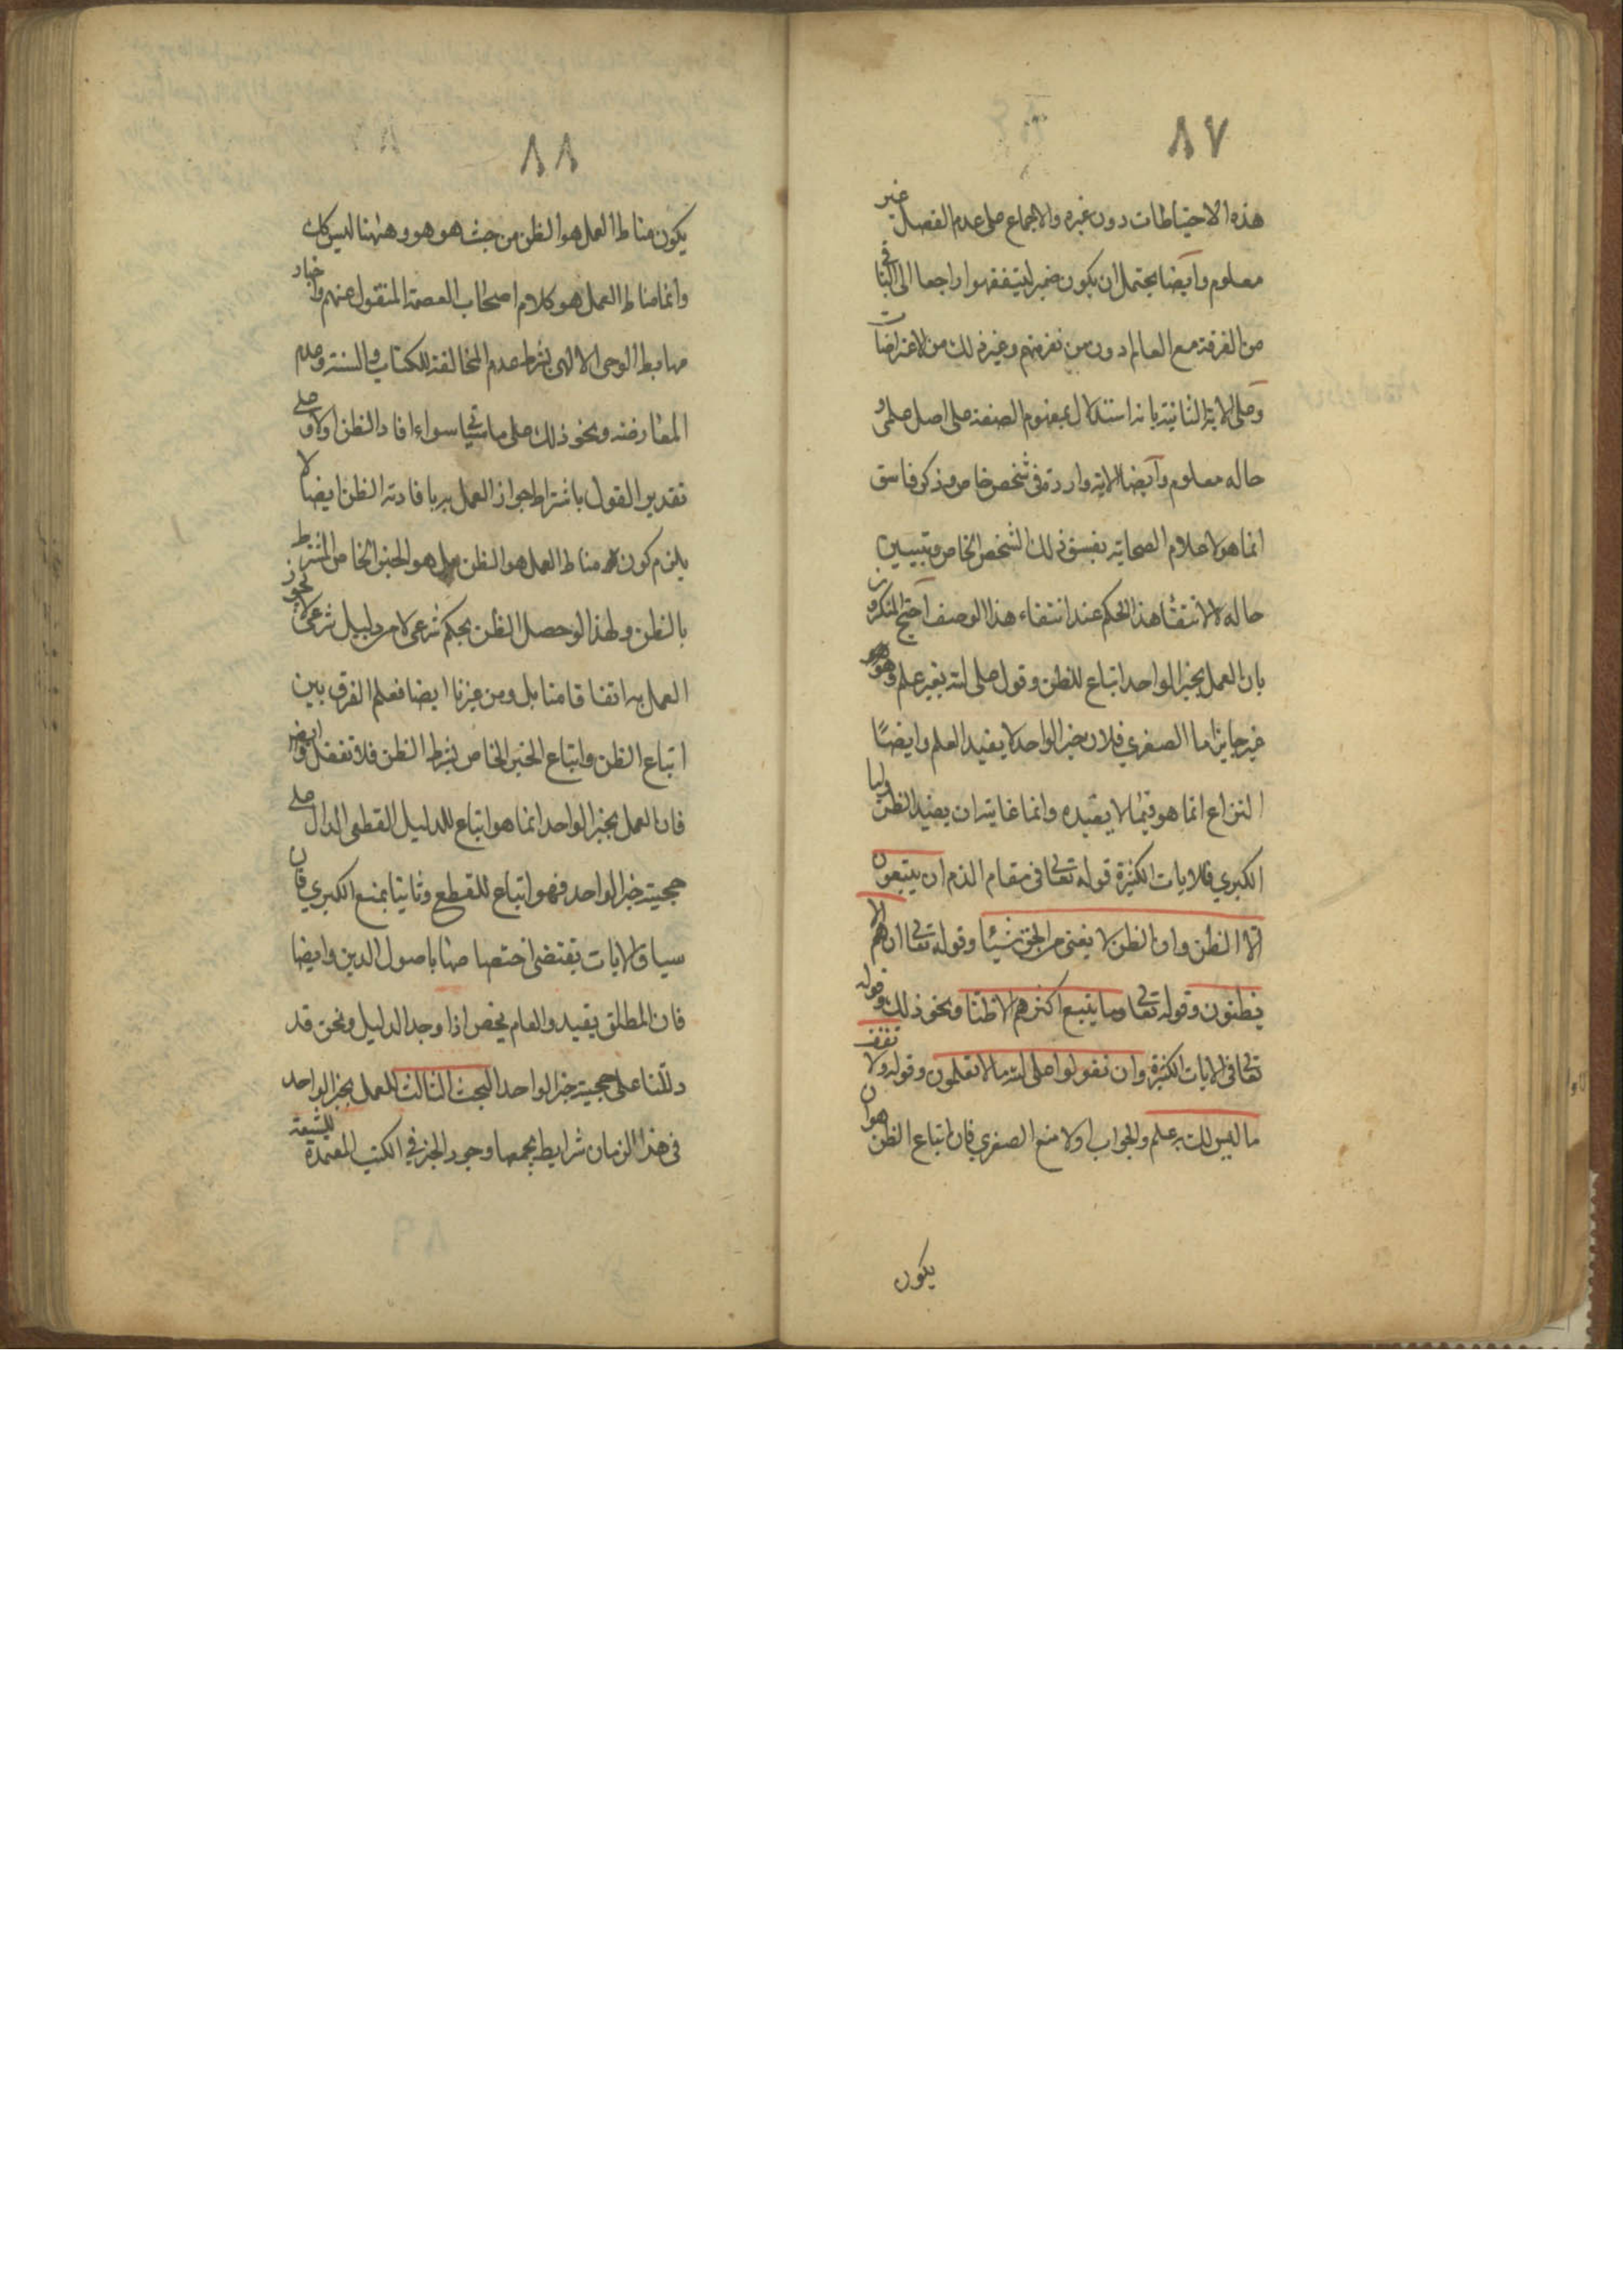 ٨٧
هذه الاحتياطات دون غيره والاجماع على عدم الفصل غير
معلوم وايضا يحتمل ان يكون ضمير ليتفقهوا راجعا الى الباقي
من الفرقة مع العالم دون من نفر منهم وغير ذلك من الاعتراضات
وعلى الآية الثانية بانه استدلال بمفهوم الصفة على اصل علمي و
حاله معلوم وايضا الاية واردة في شخص خاص وذكر فاسق
انما هو لاعلام الصحابة بفسق ذلك الشخص الخاص وتبيين
حاله لا لانتفاء هذا الحكم عند انتفاء هذا الوصف احتج المنكرون
بان العمل بخبر الواحد اتباع للظن وقول على الله بغير علم وهو
غير جايز اما الصغري فلان خبر الواحد لا يفيد العلم وايضًا
النزاع انما هو فيما لا يفيده وانما غايته ان يفيد الظن واما
الكبري فللايات الكثيرة قوله تعالى في مقام الذم ان يتبعون
الا الظن وان الظن لا يغني من الحق شيئا وقوله تعالى ان هم الا
يظنون وقوله تعالى وما يتبع اكثرهم الا ظنا ونحو ذلك وقوله
تعالى في الايات الكثيرة وان تقولوا على الله ما لا تعلمون وقوله ولا تقف
ما ليس لك به علم والجواب اولا منع الصغري فان اتباع الظن هو ان
يكون
٨٨
يكون مناط العمل هو الظن من حيث هو هو وههنا ليس كك
وانما مناط العمل هو كلام اصحاب العصمة المنقول عنهم واخبار
مهابط الوحي الالهي بشرط عدم المخالفة للكتاب والسنة وعدم
المعارضة ونحو ذلك على ما سيأتي سواء افاد الظن اولا وعلى
تقدير القول باشتراط جواز العمل به بافادته الظن ايضا لا
يلزم كون مناط العمل هو الظن بل هو الخبر الخاص المشترط
بالظن ولهذا لو حصل الظن بحكم شرعي لا من دليل شرعي لا يجوز
العمل به اتفاقا منا بل ومن غيرنا ايضا فعلم الفرق بين
اتباع الظن واتباع الخبر الخاص بشرط الظن فلا تغفل وايضا
فان العمل بخبر الواحد انما هو اتباع للدليل القطعي الدال على
حجية خبر الواحد فهو اتباع للقطع وثانيا بمنع الكبري فان
سياق الايات يقتضي اختصاصها باصول الدين وايضا
فان المطلق يقيد والعام يخص اذا وجد الدليل ونحن قد
دللنا على حجية خبر الواحد البحث الثالث للعمل بخبر الواحد
في هذا الزمان شرايط يجمعها وجود الخبر في الكتب المعتمدة للشيعة